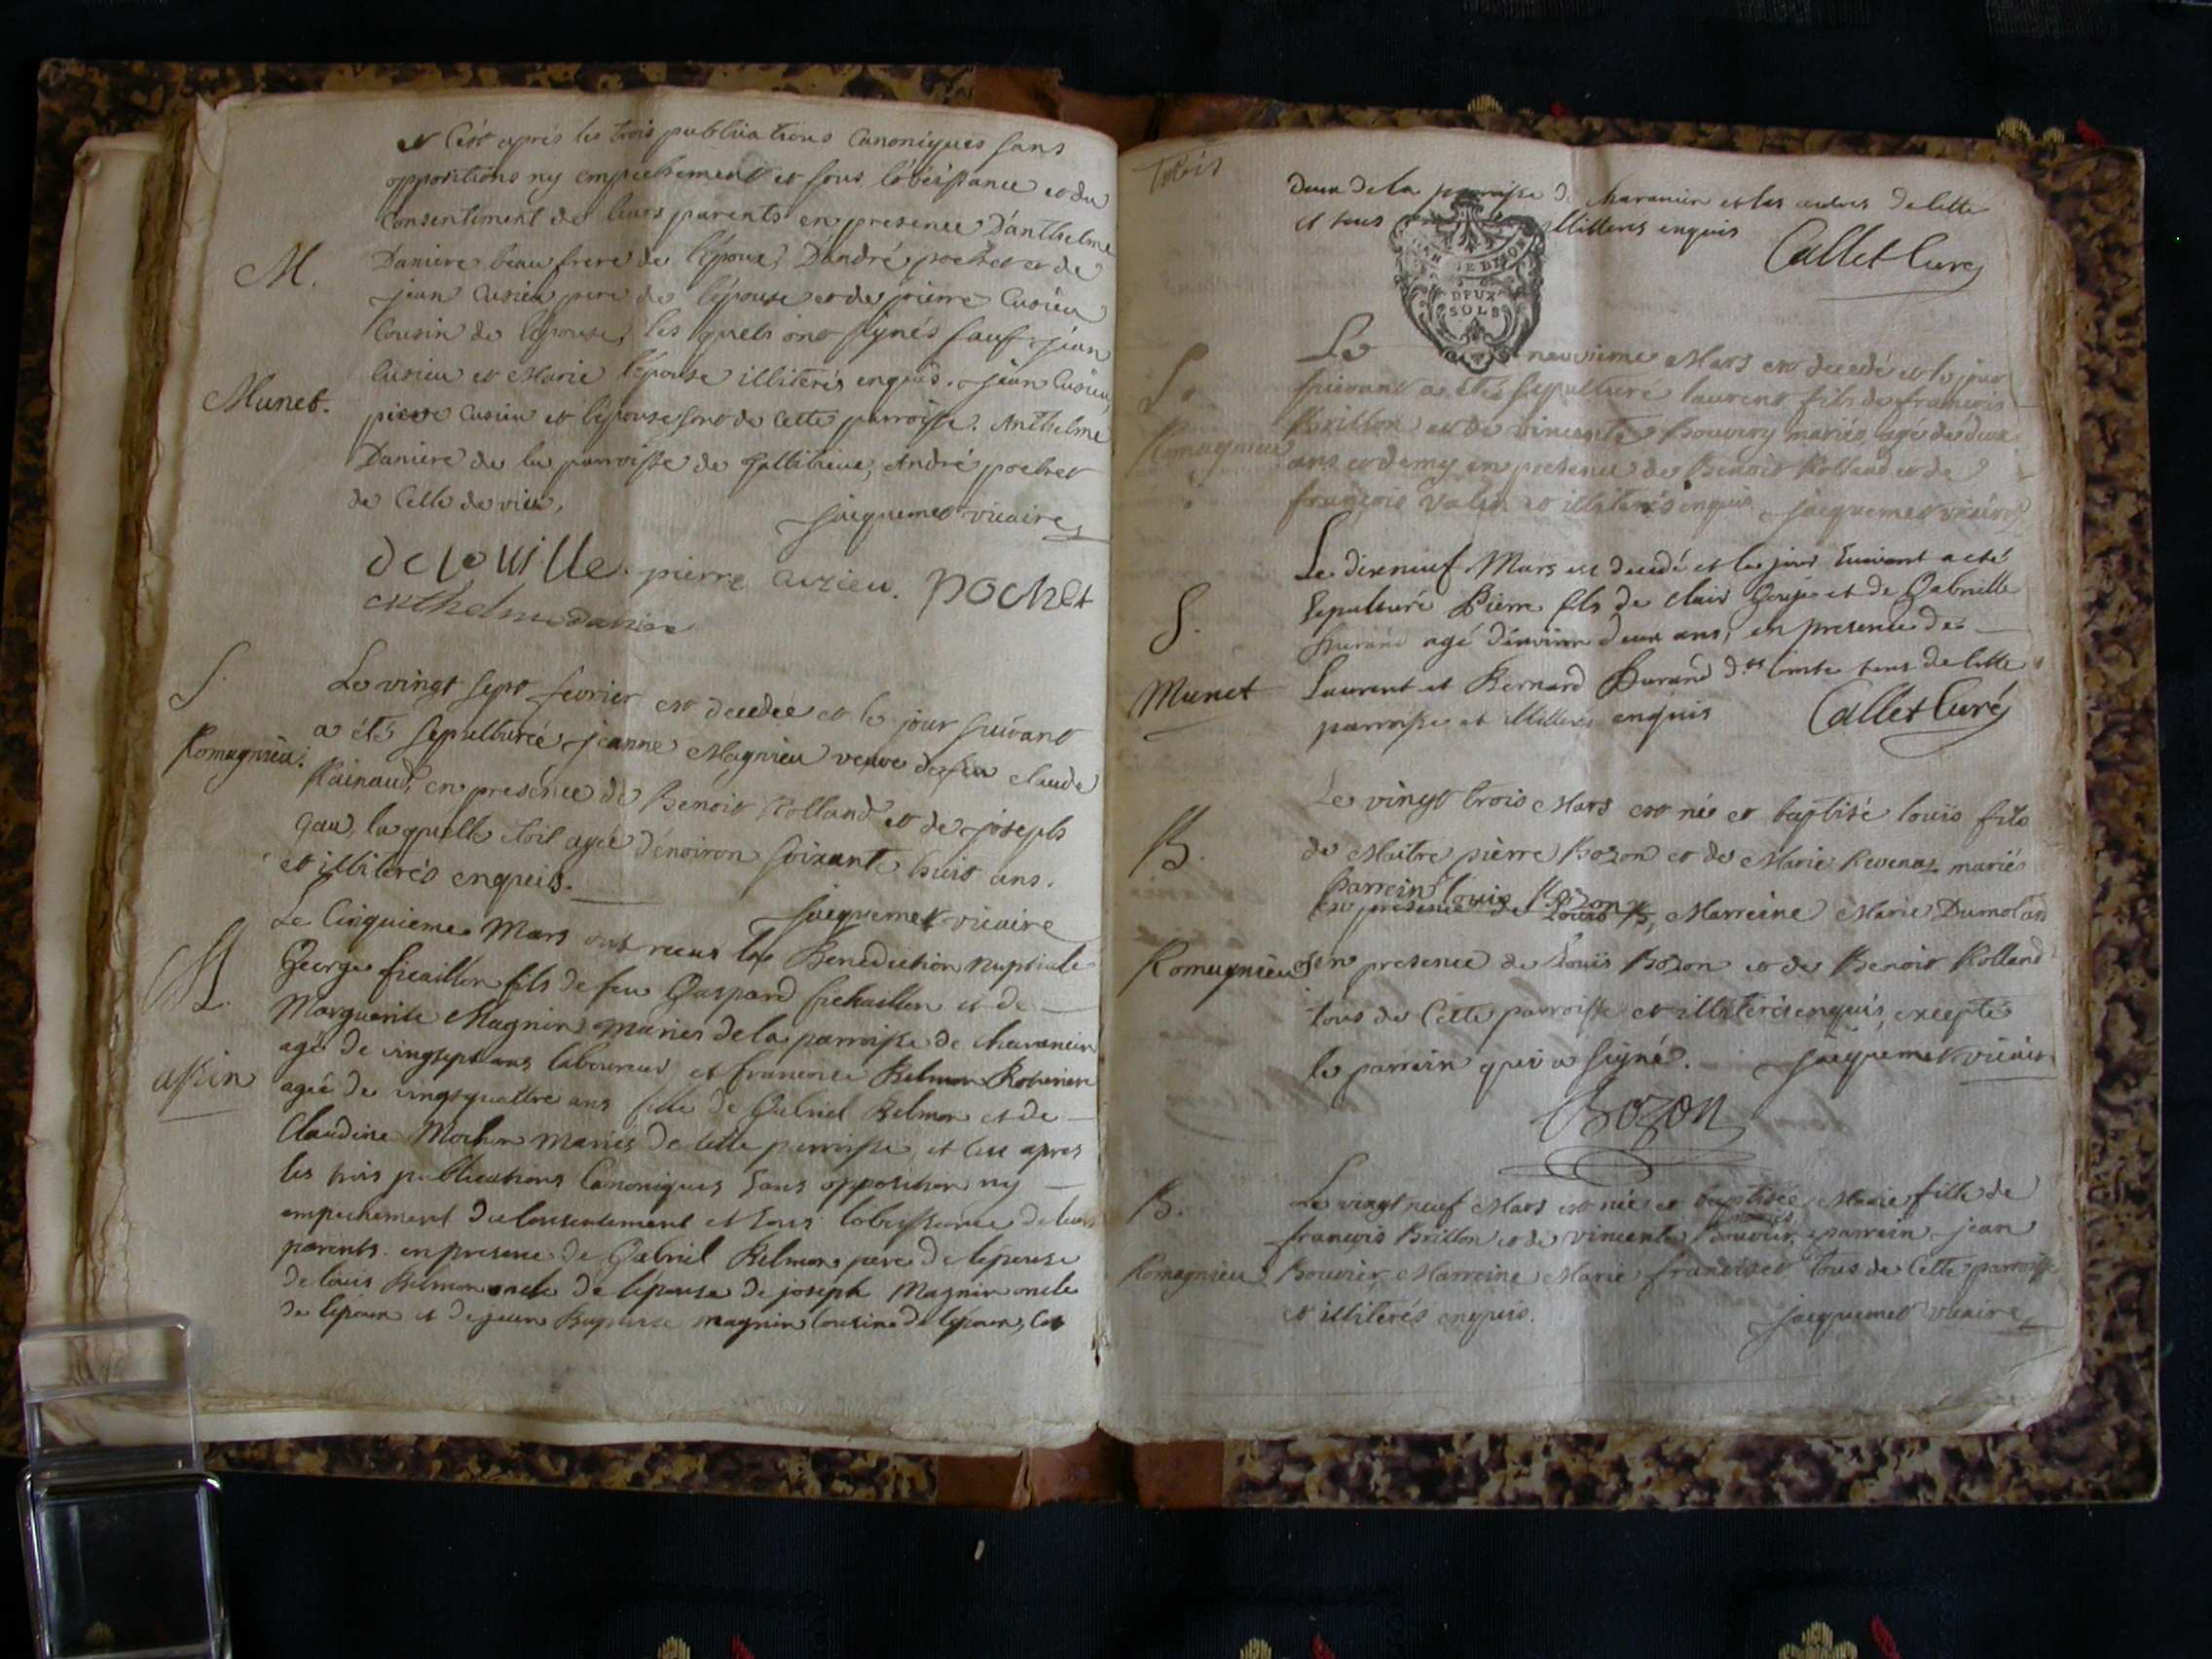 et C'est après les trois publications Canoniques sans
oppositions ny empechement et sous l'obeissance et du
Consentiment de leurs parents en presence D'anthelme
M.
Daniere beau frere de l'époux, D'andré pochet et de
jean Cusieu pere de l'épouse et de pierre Cusieu
Cousin de l'épouse, les quels ont signés sauf jean
Cusieu et Marie l'épouse illiterés enquis. jean Cusieu,
Munet.
pierre Cusieu et l'épouse sont de cette parroisse. Anthelme
Daniere de la parroisse de, André pochet
de Celle de
jacquemet vicaire
pierre cuzieu. pochet
anthelme daniere
S.
Le vingt sept fevrier est decedée et le jour suivant
Romagnieu.
a été sepulturée jeanne Magnieu veuve de feu claude
Rainaud, en presence de Benoit Rolland et de joseph
la quelle étoit agée d'environ soixante huit ans.
et illiterés enqueis.
jacquemet vicaire
M.
Le Cinquieme Mars ont recus la Benediction nuptiale
George ficaillon fils de feu Gaspard fichaillon et de
Marguerite Magnin mariés de la parroisse de charancin
agé de vingsept ans laboureur et francoise Belmon
agée de vingsquattre ans fille de Gabriel Belmon et de
Claudine mariés de cette parroisse, et ce apres
les trois publications Canoniques sans opposition ny
empechement du consentement et sous l'obeissance de leurs
parents en presence de Gabriel Belmon pere de l'epouse
de louis Belmon oncle de l'epouse de joseph Magnin oncle
de l'epoux et de jean Baptiste magnin cousin de l'epoux, les
deux de la parroisse de charancin et les autres de cette
et tous illitterés enquis
Callet Curé
DEUX
SOLS
S.
Le neuvieme Mars est decedé et le jour
suivant a été sepulturé laurent fils de francois
Romagnieu
Brillon et de vincente Bouvery mariés agé de deux
ans et demy en presence de Benoit Rolland et de
françois et illiterés enquis jacquemet vicaire
S.
Le dixneuf Mars est decedé et le jour suivant a eté
sepulturé Pierre fils de clair et de Gabrielle
Durand agé d'environ deux ans, en presence de
Munet
Laurent et Bernard Durand tous de cette
parroisse et illitterés enquis
Callet Curé
B.
Le vingt trois Mars est né et baptisé louis fils
de Maitre pierre Bozon et de Marie mariés
parrein louis Bozon, Marreine Marie Dumolard
Romagnieu
en presence de Louis Bozon et de Benoit Rolland
tous de Cette parroisse et illiterés enquis, excepté
le parrein qui a signé.
jacquemet vicaire
Bozon
B.
Le vingt neuf Mars est née et baptisée Marie fille de
françois Brillon et de vincente Bouvier mariés, parrein jean
Romagnieu
Bouvier, Marreine Marie tous de Cette parroisse
et illiterés enquis.
jacquemet vicaire